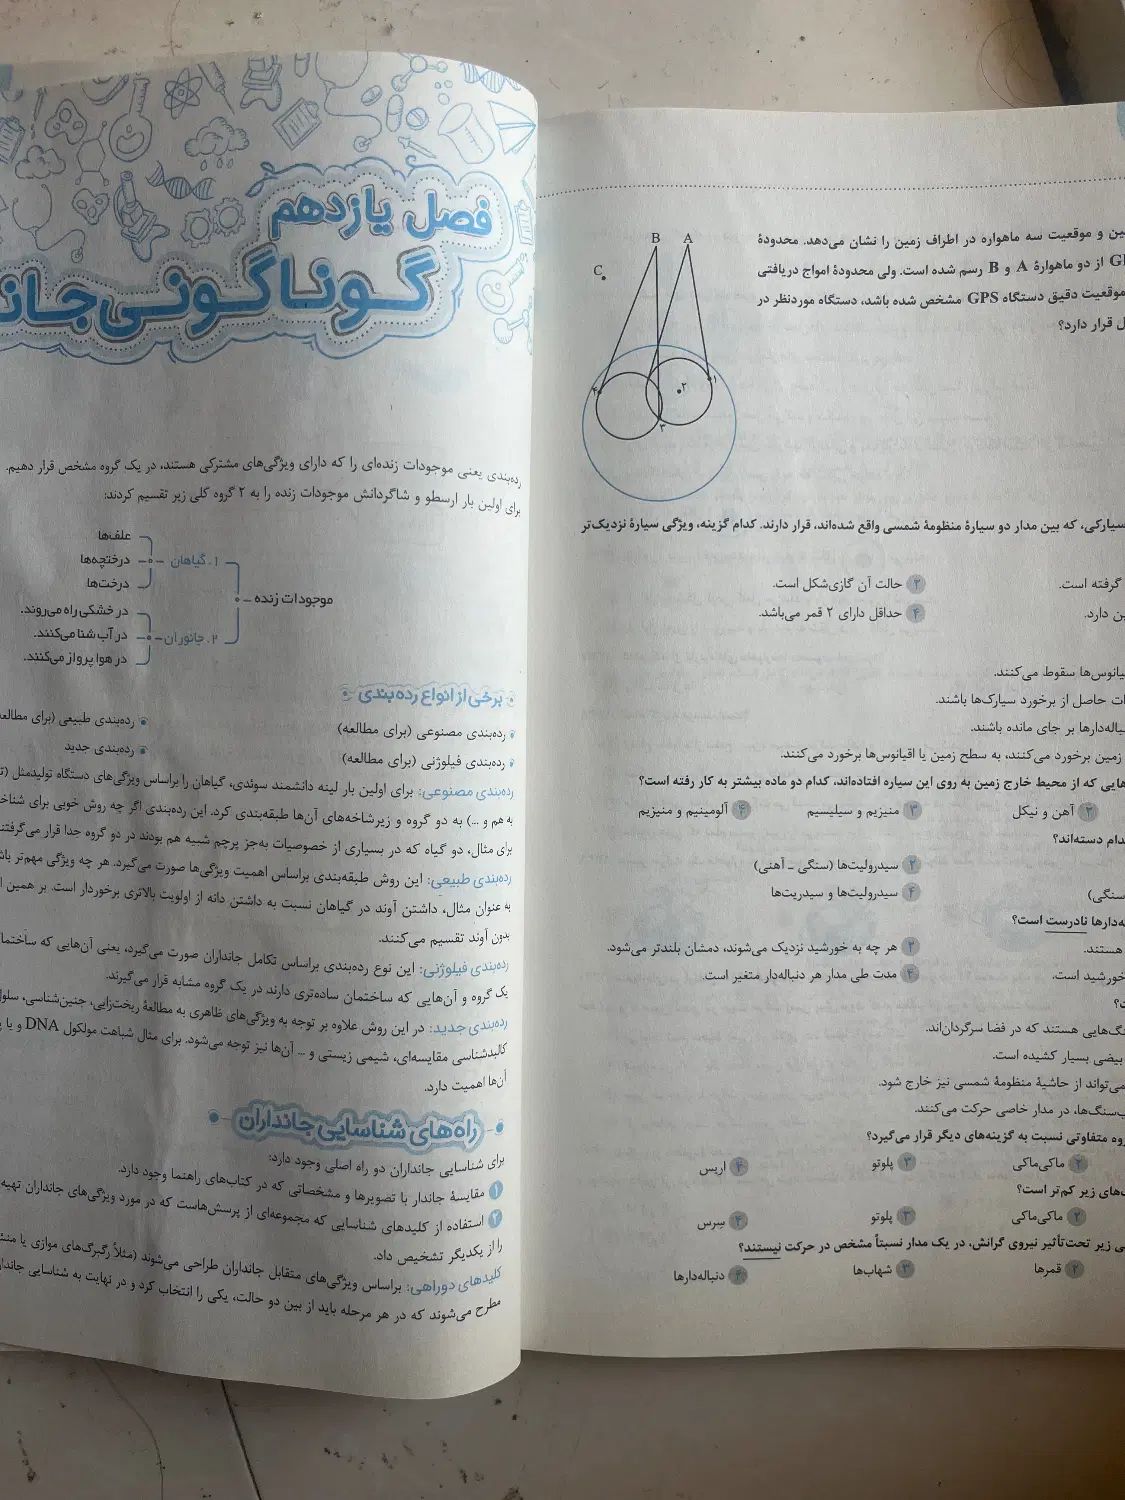 ین و موقعیت سه ماهواره در اطراف زمین را نشان می‌دهد. محدودهٔ
از دو ماهوارهٔ A و B رسم شده است. ولی محدودهٔ امواج دریافتی
موقعیت دقیق دستگاه GPS مشخص شده باشد، دستگاه موردنظر در
ل قرار دارد؟
B A
C
۴ ۱
۲
۳
سیارکی، که بین مدار دو سیارهٔ منظومهٔ شمسی واقع شده‌اند، قرار دارند. کدام گزینه، ویژگی سیارهٔ نزدیک‌تر
گرفته است. ۲ حالت آن گازی‌شکل است.
ین دارد. ۴ حداقل دارای ۲ قمر می‌باشد.
یانوس‌ها سقوط می‌کنند.
ات حاصل از برخورد سیارک‌ها باشند.
باله‌دارها بر جای مانده باشند.
زمین برخورد می‌کنند، به سطح زمین یا اقیانوس‌ها برخورد می‌کنند.
هایی که از محیط خارج زمین به روی این سیاره افتاده‌اند، کدام دو ماده بیشتر به کار رفته است؟
۲ آهن و نیکل ۳ منیزیم و سیلیسیم ۴ آلومینیم و منیزیم
دام دسته‌اند؟
۲ سیدرولیت‌ها (سنگی ـ آهنی)
سنگی) ۴ سیدرولیت‌ها و سیدریت‌ها
ه‌دارها نادرست است؟
هستند. ۲ هر چه به خورشید نزدیک می‌شوند، دمشان بلندتر می‌شود.
خورشید است. ۴ مدت طی مدار هر دنباله‌دار متغیر است.
ت؟
نگ‌هایی هستند که در فضا سرگردان‌اند.
بیضی بسیار کشیده است.
می‌تواند از حاشیهٔ منظومهٔ شمسی نیز خارج شود.
ب‌سنگ‌ها، در مدار خاصی حرکت می‌کنند.
روه متفاوتی نسبت به گزینه‌های دیگر قرار می‌گیرد؟
۲ ماکی‌ماکی ۳ پلوتو ۴ اریس
ت‌های زیر کم‌تر است؟
۲ ماکی‌ماکی ۳ پلوتو ۴ سِرس
ی زیر تحت‌تأثیر نیروی گرانش، در یک مدار نسبتاً مشخص در حرکت نیستند؟
۲ قمرها ۳ شهاب‌ها ۴ دنباله‌دارها
فصل یازدهم
گوناگونی جان
رده‌بندی یعنی موجودات زنده‌ای را که دارای ویژگی‌های مشترکی هستند، در یک گروه مشخص قرار دهیم.
برای اولین بار ارسطو و شاگردانش موجودات زنده را به ۲ گروه کلی زیر تقسیم کردند:
موجودات زنده
۱. گیاهان
علف‌ها
درختچه‌ها
درخت‌ها
۲. جانوران
در خشکی راه می‌روند.
در آب شنا می‌کنند.
در هوا پرواز می‌کنند.
برخی از انواع رده‌بندی
رده‌بندی مصنوعی (برای مطالعه) رده‌بندی طبیعی (برای مطالعه
رده‌بندی فیلوژنی (برای مطالعه) رده‌بندی جدید
رده‌بندی مصنوعی: برای اولین بار لینه دانشمند سوئدی، گیاهان را براساس ویژگی‌های دستگاه تولیدمثل
به هم و ...) به دو گروه و زیرشاخه‌های آن‌ها طبقه‌بندی کرد. این رده‌بندی اگر چه روش خوبی برای شناخ
برای مثال، دو گیاه که در بسیاری از خصوصیات به‌جز پرچم شبیه هم بودند در دو گروه جدا قرار می‌گرفتند
رده‌بندی طبیعی: این روش طبقه‌بندی براساس اهمیت ویژگی‌ها صورت می‌گیرد. هر چه ویژگی مهم‌تر باش
به عنوان مثال، داشتن آوند در گیاهان نسبت به داشتن دانه از اولویت بالاتری برخوردار است. بر همین ا
بدون آوند تقسیم می‌کنند.
رده‌بندی فیلوژنی: این نوع رده‌بندی براساس تکامل جانداران صورت می‌گیرد، یعنی آن‌هایی که ساختما
یک گروه و آن‌هایی که ساختمان ساده‌تری دارند در یک گروه مشابه قرار می‌گیرند.
رده‌بندی جدید: در این روش علاوه بر توجه به ویژگی‌های ظاهری به مطالعهٔ ریخت‌زایی، جنین‌شناسی، سلول
کالبدشناسی مقایسه‌ای، شیمی زیستی و ... آن‌ها نیز توجه می‌شود. برای مثال شباهت مولکول DNA و یا
آن‌ها اهمیت دارد.
راه‌های شناسایی جانداران
برای شناسایی جانداران دو راه اصلی وجود دارد:
۱ مقایسهٔ جاندار با تصویرها و مشخصاتی که در کتاب‌های راهنما وجود دارد.
۲ استفاده از کلیدهای شناسایی که مجموعه‌ای از پرسش‌هاست که در مورد ویژگی‌های جانداران تهیه
را از یکدیگر تشخیص داد.
کلیدهای دوراهی: براساس ویژگی‌های متقابل جانداران طراحی می‌شوند (مثلاً رگبرگ‌های موازی یا منش
مطرح می‌شوند که در هر مرحله باید از بین دو حالت، یکی را انتخاب کرد و در نهایت به شناسایی جاندار